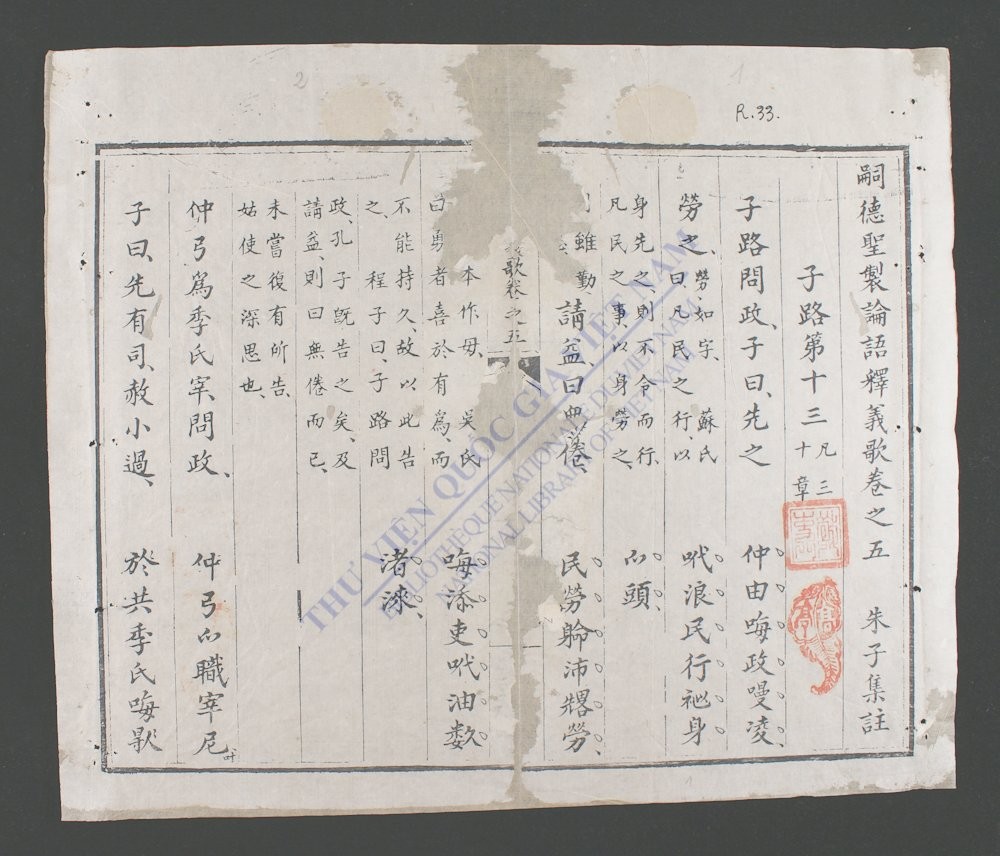 R.33.
嗣德聖製論語釋義歌卷之五 朱子集註
子路第十三 凡三十章
子路問政、子曰、先之 仲由晦政嘜凌、
勞之、勞、如字、蘇氏曰、凡民之行、以 吠浪民行祂身
身先之、則不令而行、凡民之事、以身勞之、 𠫾頭、
雖勤 請益、曰、無倦、 民勞 沛 勞、
歌卷之五
本作毋、吳氏曰、勇者喜於有爲、而 添吏吠油数
不能持久、故以此告之、程子曰、子路問 渚
政、孔子旣告之矣、及請益、則曰無倦而已、
未嘗復有所告、姑使之深思也、
仲弓爲季氏宰、問政、 仲弓 職宰尼
子曰、先有司、赦小過、 於共季氏
THƯ VIỆN QUỐC GIA VIỆT NAM
BIBLIOTHÈQUE NATIONALE DU VIETNAM
NATIONAL LIBRARY OF VIETNAM